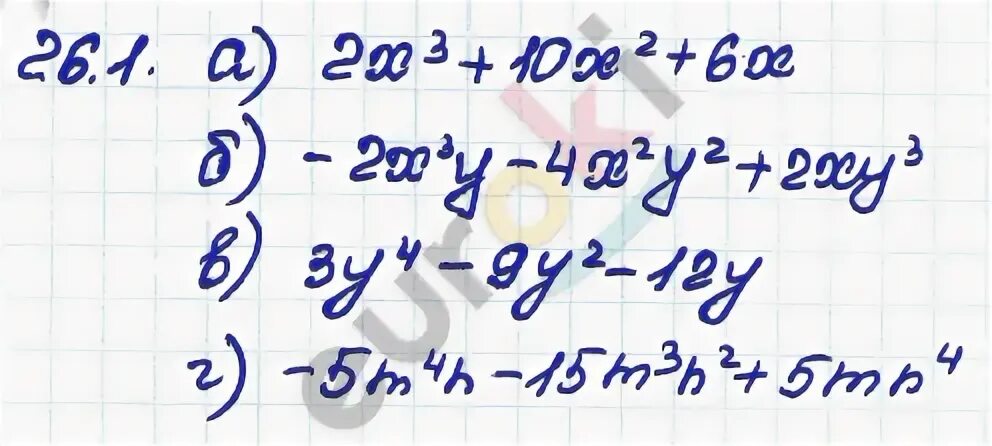 26.1. а) 2x³ + 10x² + 6x
б) - 2x³y - 4x²y² + 2xy³
в) 3y⁴ - 9y² - 12y
г) - 5m⁴n - 15m³n² + 5mn⁴
euroki